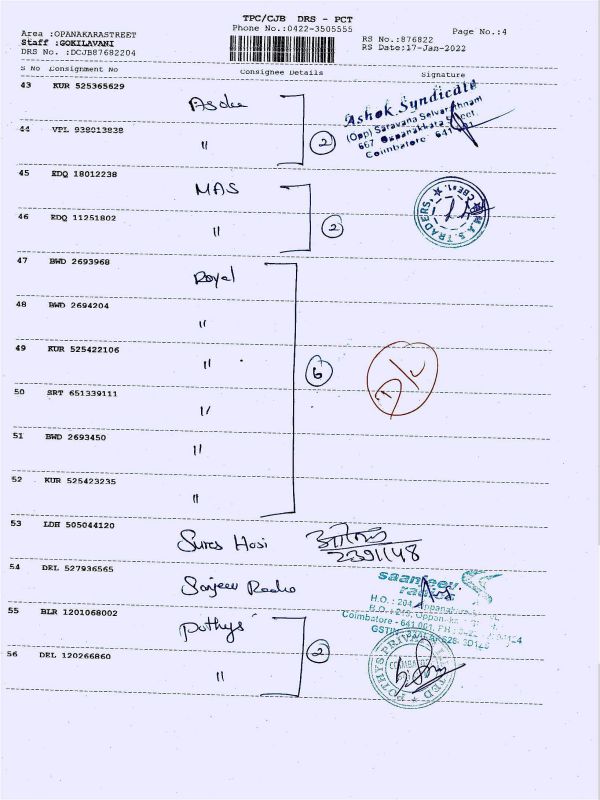 TPC/CJB DRS - PCT
Area :OPANAKARASTREET Phone No.:0422-3505555 Page No.:4
Staff :GOKILAVANI RS No.:876822
DRS No. :DCJB87682204 RS Date:17-Jan-2022
S No Consignment No Consignee Details Signature
43 KUR 525365629
Ashok Syndicate
(Opp) Saravana Selvarathnam
667 Oppanakkara Street.
Coimbatore 641
44 VPL 938013838 " 2
45 EDQ 18012238 MAS
M.A.S. TRADERS
46 EDQ 11251802 " 2
47 BWD 2693968 Royal
48 BWD 2694204 "
49 KUR 525422106 " 6
50 SRT 651339111 "
51 BWD 2693450 "
52 KUR 525423235 "
53 LDH 505044120 Sures Hosi
2391148
54 DEL 527936565
saanjeev
H.O. : 204,
Coimbatore - 641 001,
55 BLR 1201068002 Pothys
56 DEL 120266860 " 2